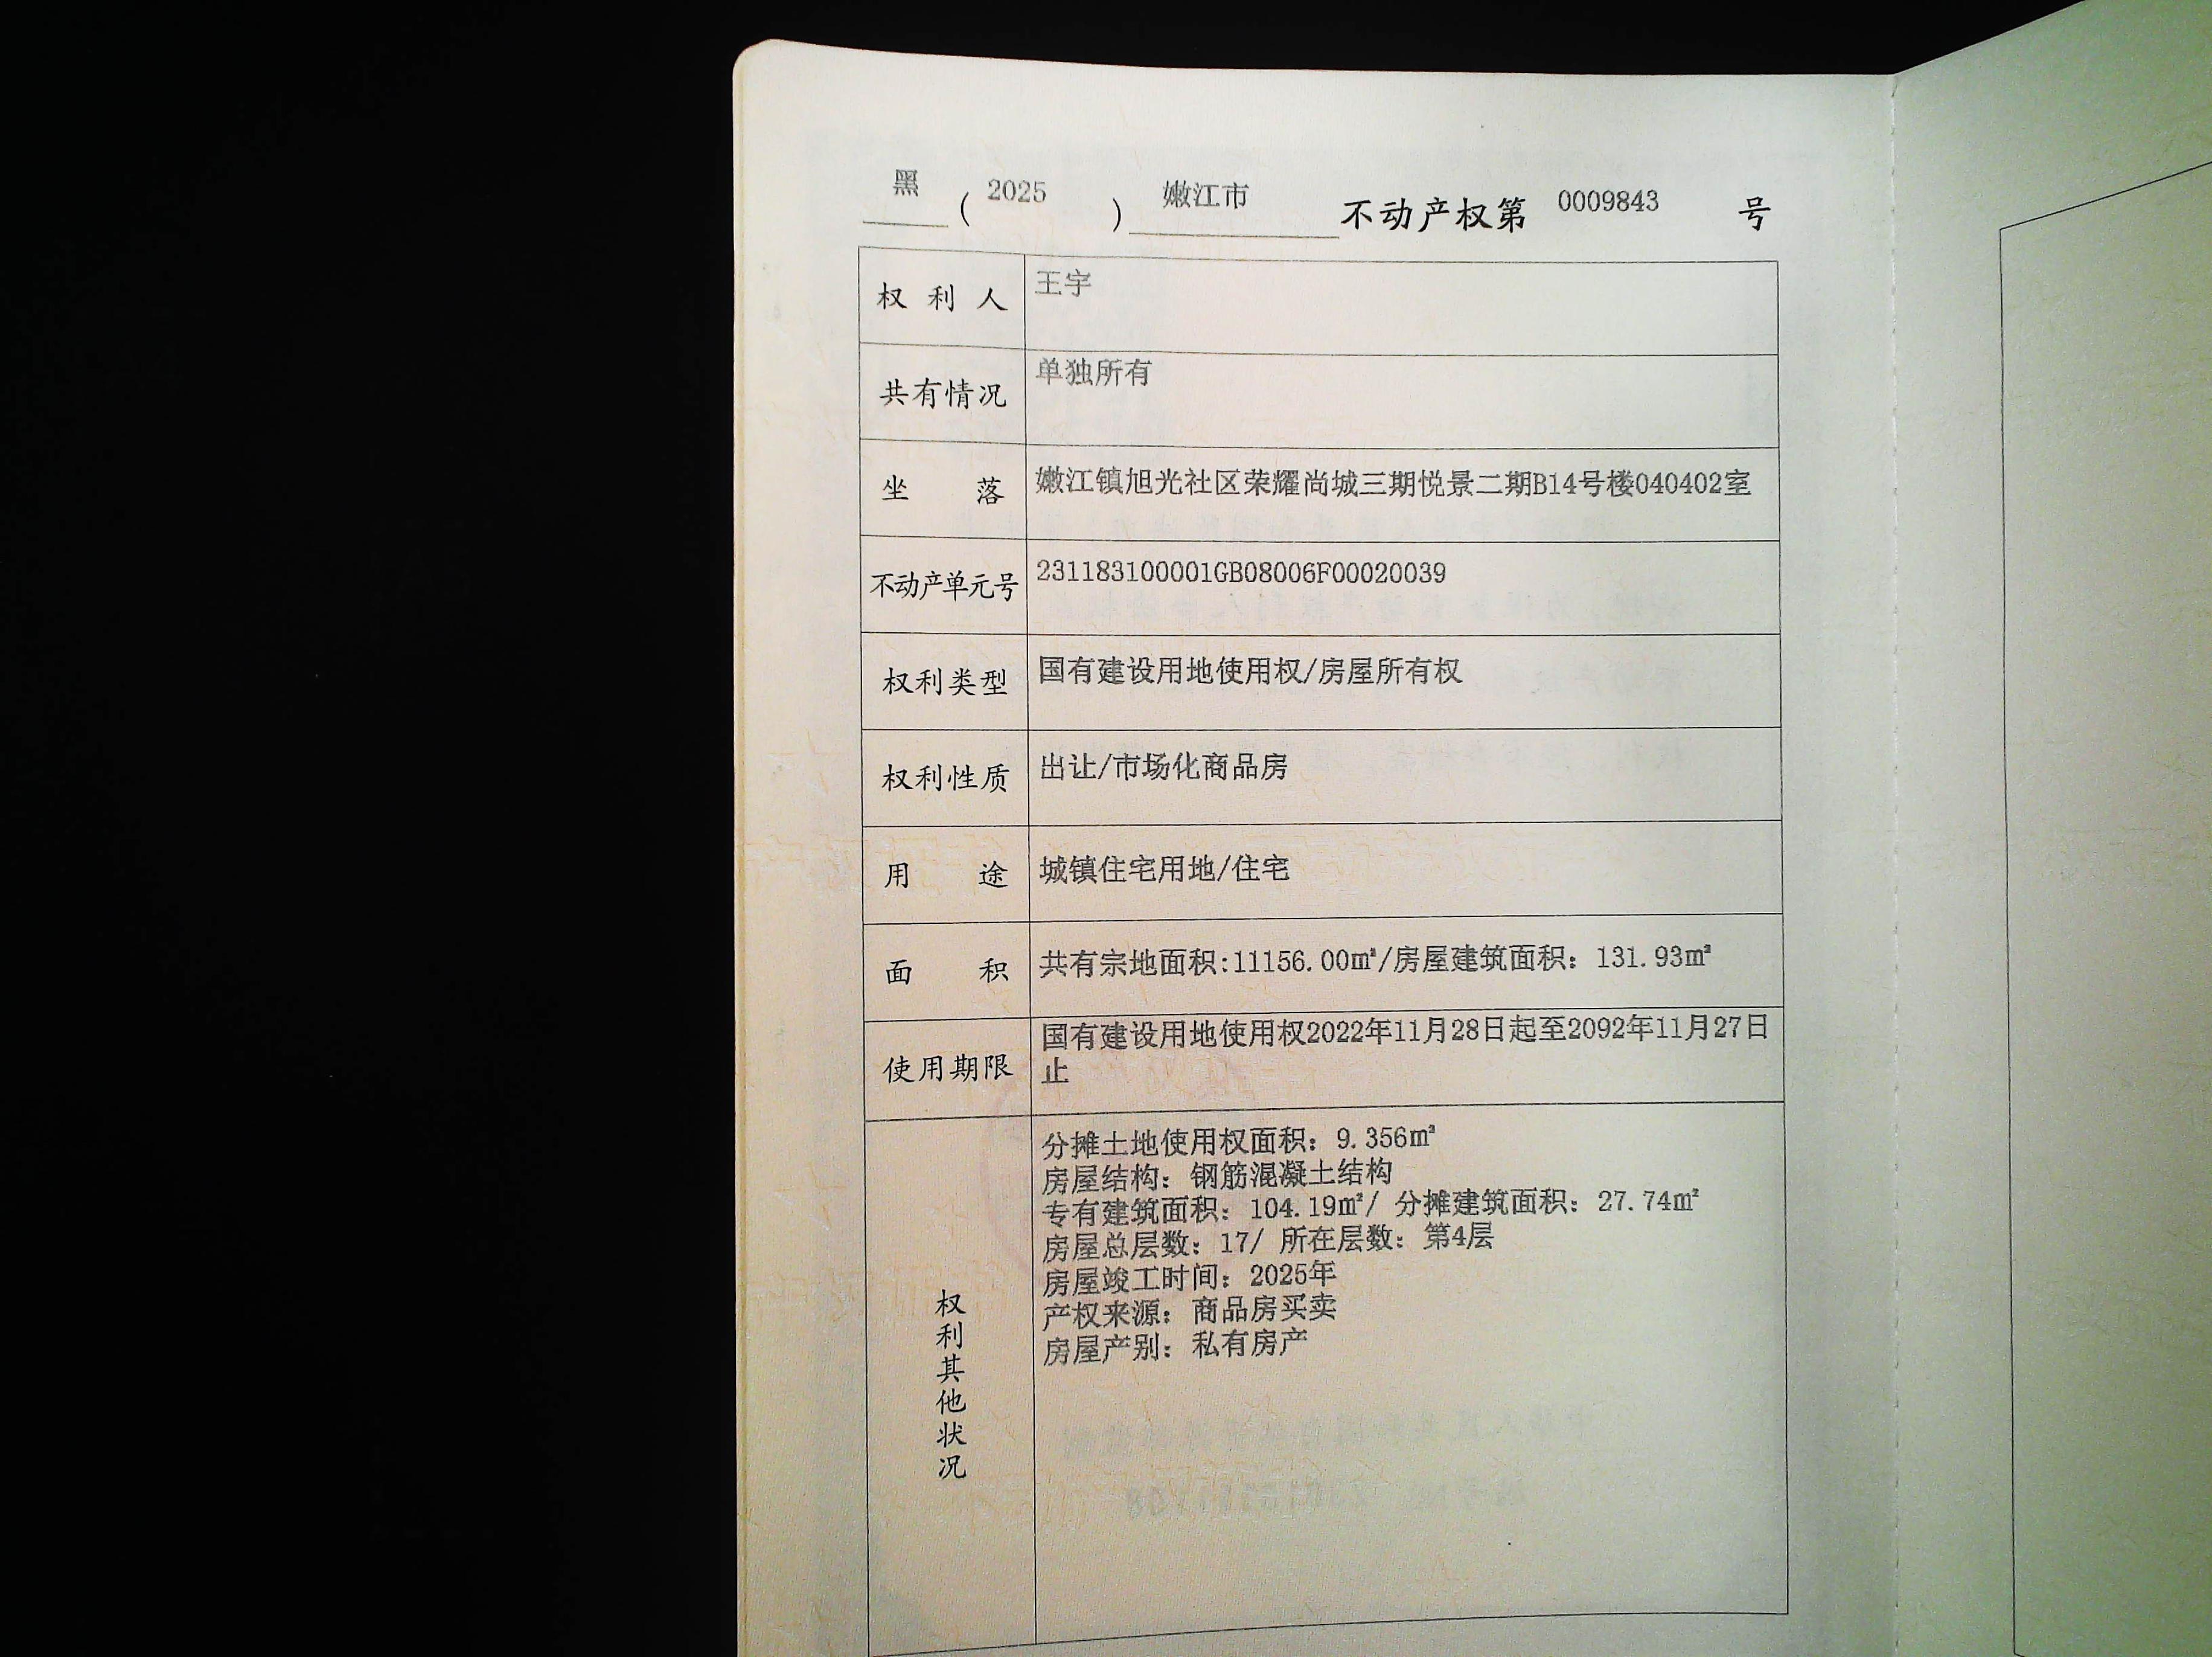 黑（2025）嫩江市不动产权第0009843号
权利人 王宇
共有情况 单独所有
坐落 嫩江镇旭光社区荣耀尚城三期悦景二期B14号楼040402室
不动产单元号 231183100001GB08006F00020039
权利类型 国有建设用地使用权/房屋所有权
权利性质 出让/市场化商品房
用途 城镇住宅用地/住宅
面积 共有宗地面积:11156.00㎡/房屋建筑面积：131.93㎡
使用期限 国有建设用地使用权2022年11月28日起至2092年11月27日
止
权利其他状况
分摊土地使用权面积：9.356㎡
房屋结构：钢筋混凝土结构
专有建筑面积：104.19㎡/ 分摊建筑面积：27.74㎡
房屋总层数：17/ 所在层数：第4层
房屋竣工时间：2025年
产权来源：商品房买卖
房屋产别：私有房产